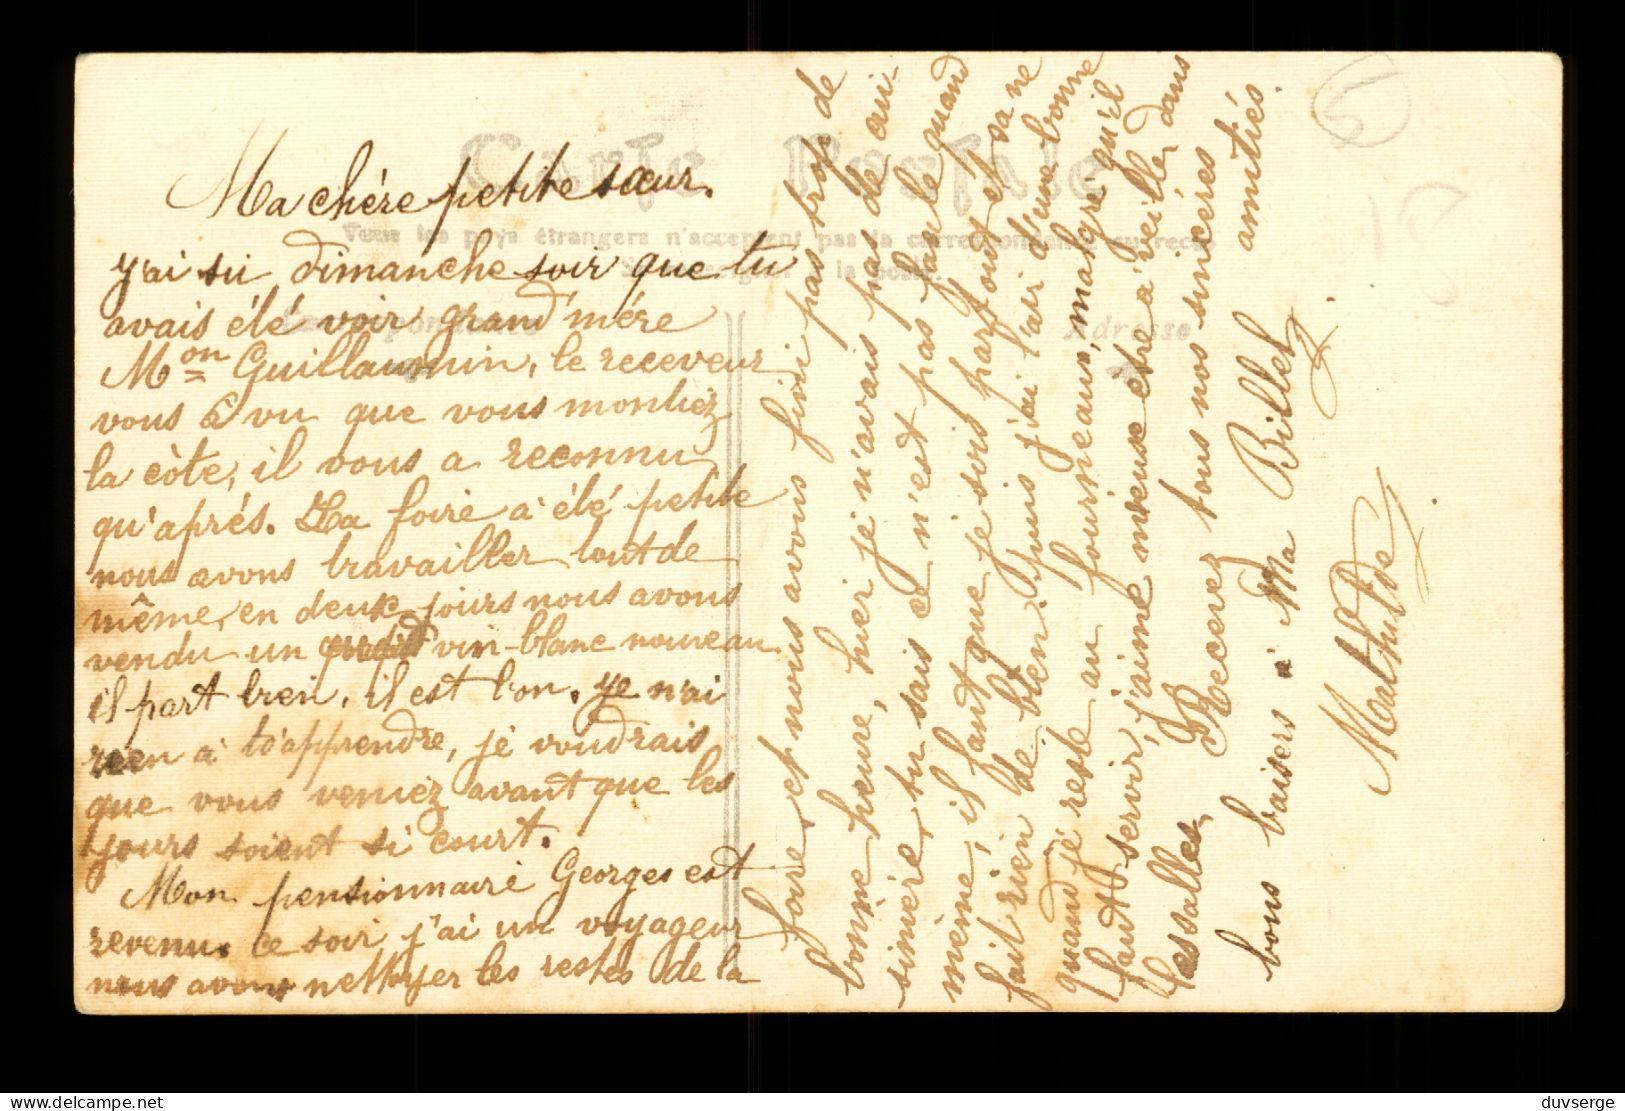 Carte Postale
Tous les pays étrangers n'acceptent pas la correspondance au recto
à la poste.
Correspondance
Adresse
Ma chère petite sœur.
J'ai su dimanche soir que tu
avais été voir grand'mère
Mon Guillaumin, le receveur
vous à vu que vous montiez
la côte, il vous a reconnu
qu'aprés. La foire a été petite
nous avons travailler tout de
même, en deux jours nous avons
vendu un vin-blanc nouveau
il part bien, il est bon. Je n'ai
rien à t'apprendre, je voudrais
que vous veniez avant que les
jours soient si court.
Mon pensionnaire Georges est
revenu. Ce soir j'ai un voyageur
nous avons nettoyer les restes de la
foire, et nous avons fini pas trop de
bonne heure, hier je n'avais pas de cui-
sinière, tu sais ce n'est pas facile quand
même, il faut que je sois partout et sa ne
fait rien de bien. Puis j'ai l'air d'une bonne
quand je reste au fourneaux, malgré qu'il
faut servir, j'aime mieux être à veiller dans
les salles. Recevez tous nos sincères
amitiés.
bons baisers à Ma Billet
Mathilde
5
18
duvserge